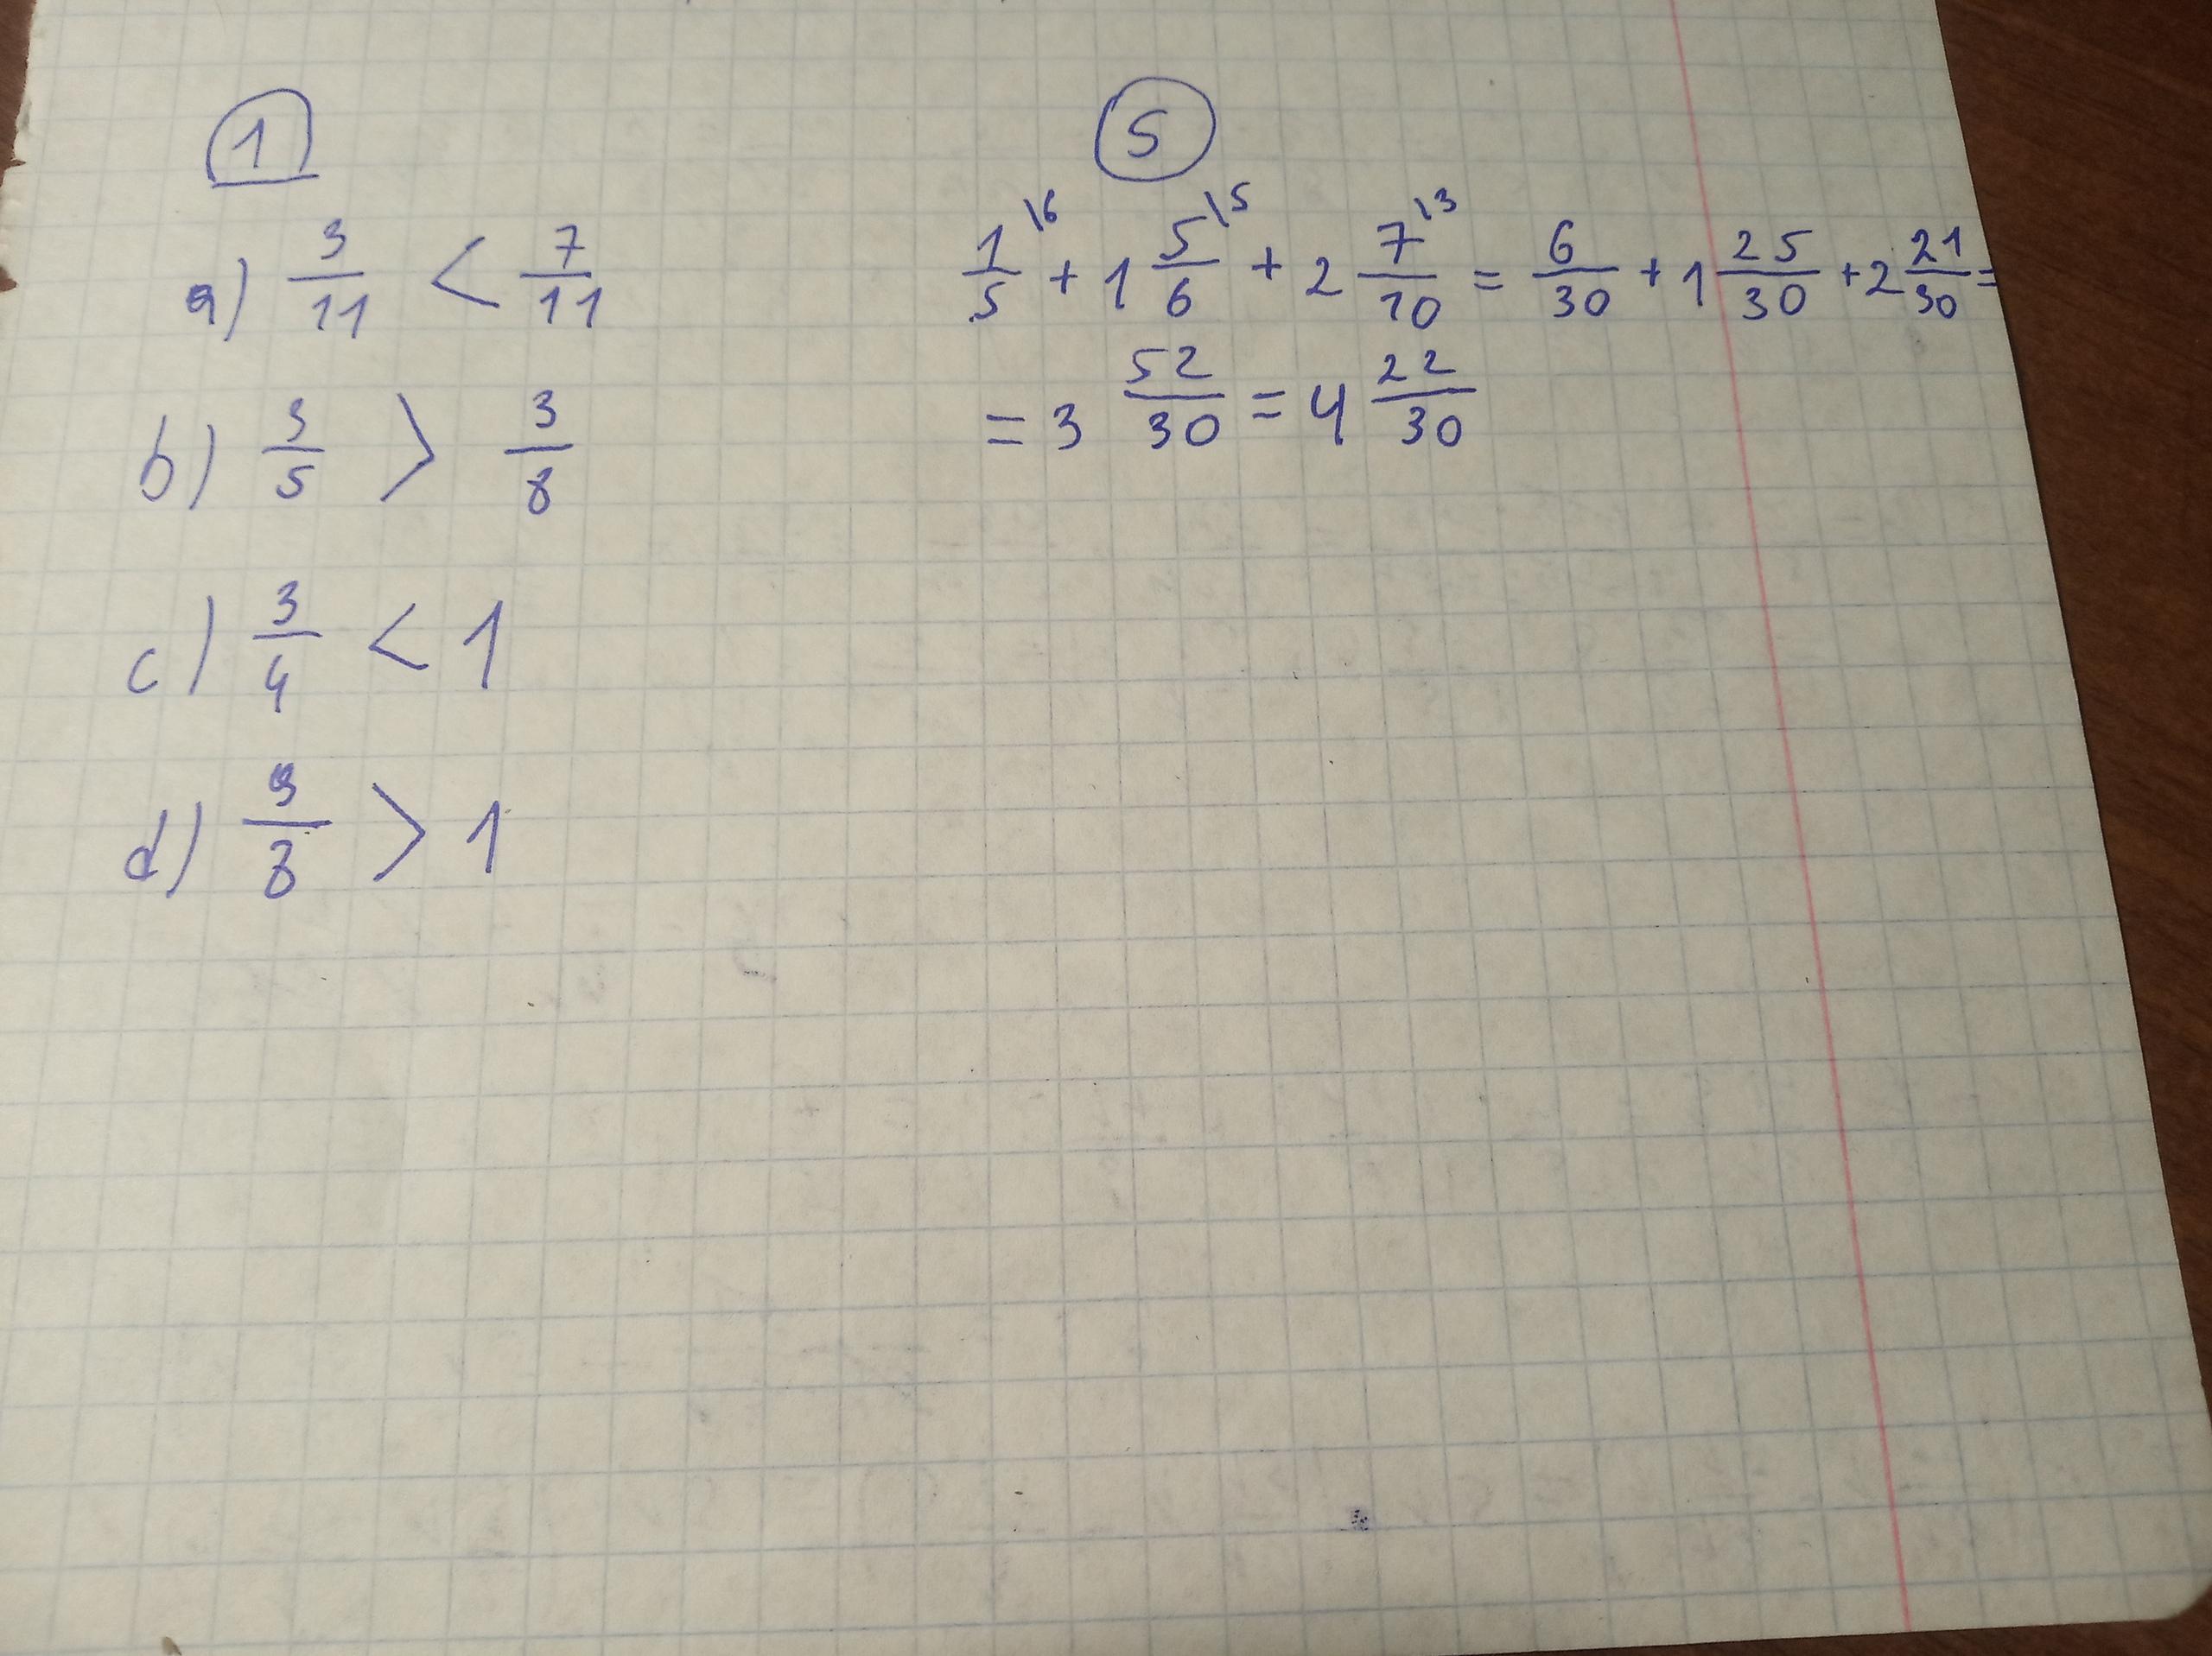 1
a) 3/11 < 7/11
b) 3/5 > 3/8
c) 3/4 < 1
d) 9/8 > 1
5
1/5\6 + 1 5/6\5 + 2 7/10\3 = 6/30 + 1 25/30 + 2 21/30 =
= 3 52/30 = 4 22/30